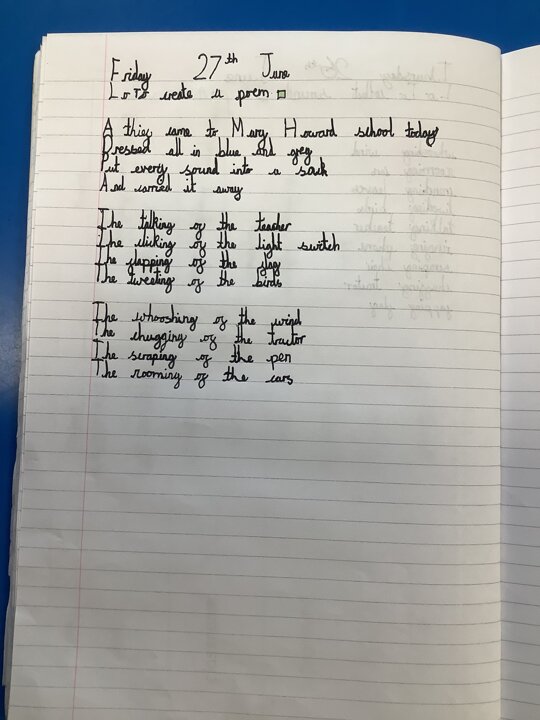 Friday 27th June
L.o To create a poem
A thief came to Mary Howard school today
Dressed all in blue and grey
Put every sound into a sack
And carried it away
The talking of the teacher
The clicking of the light switch
The flapping of the flag
The tweeting of the birds
The whooshing of the wind
The chugging of the tractor
The scraping of the pen
The rooming of the cars